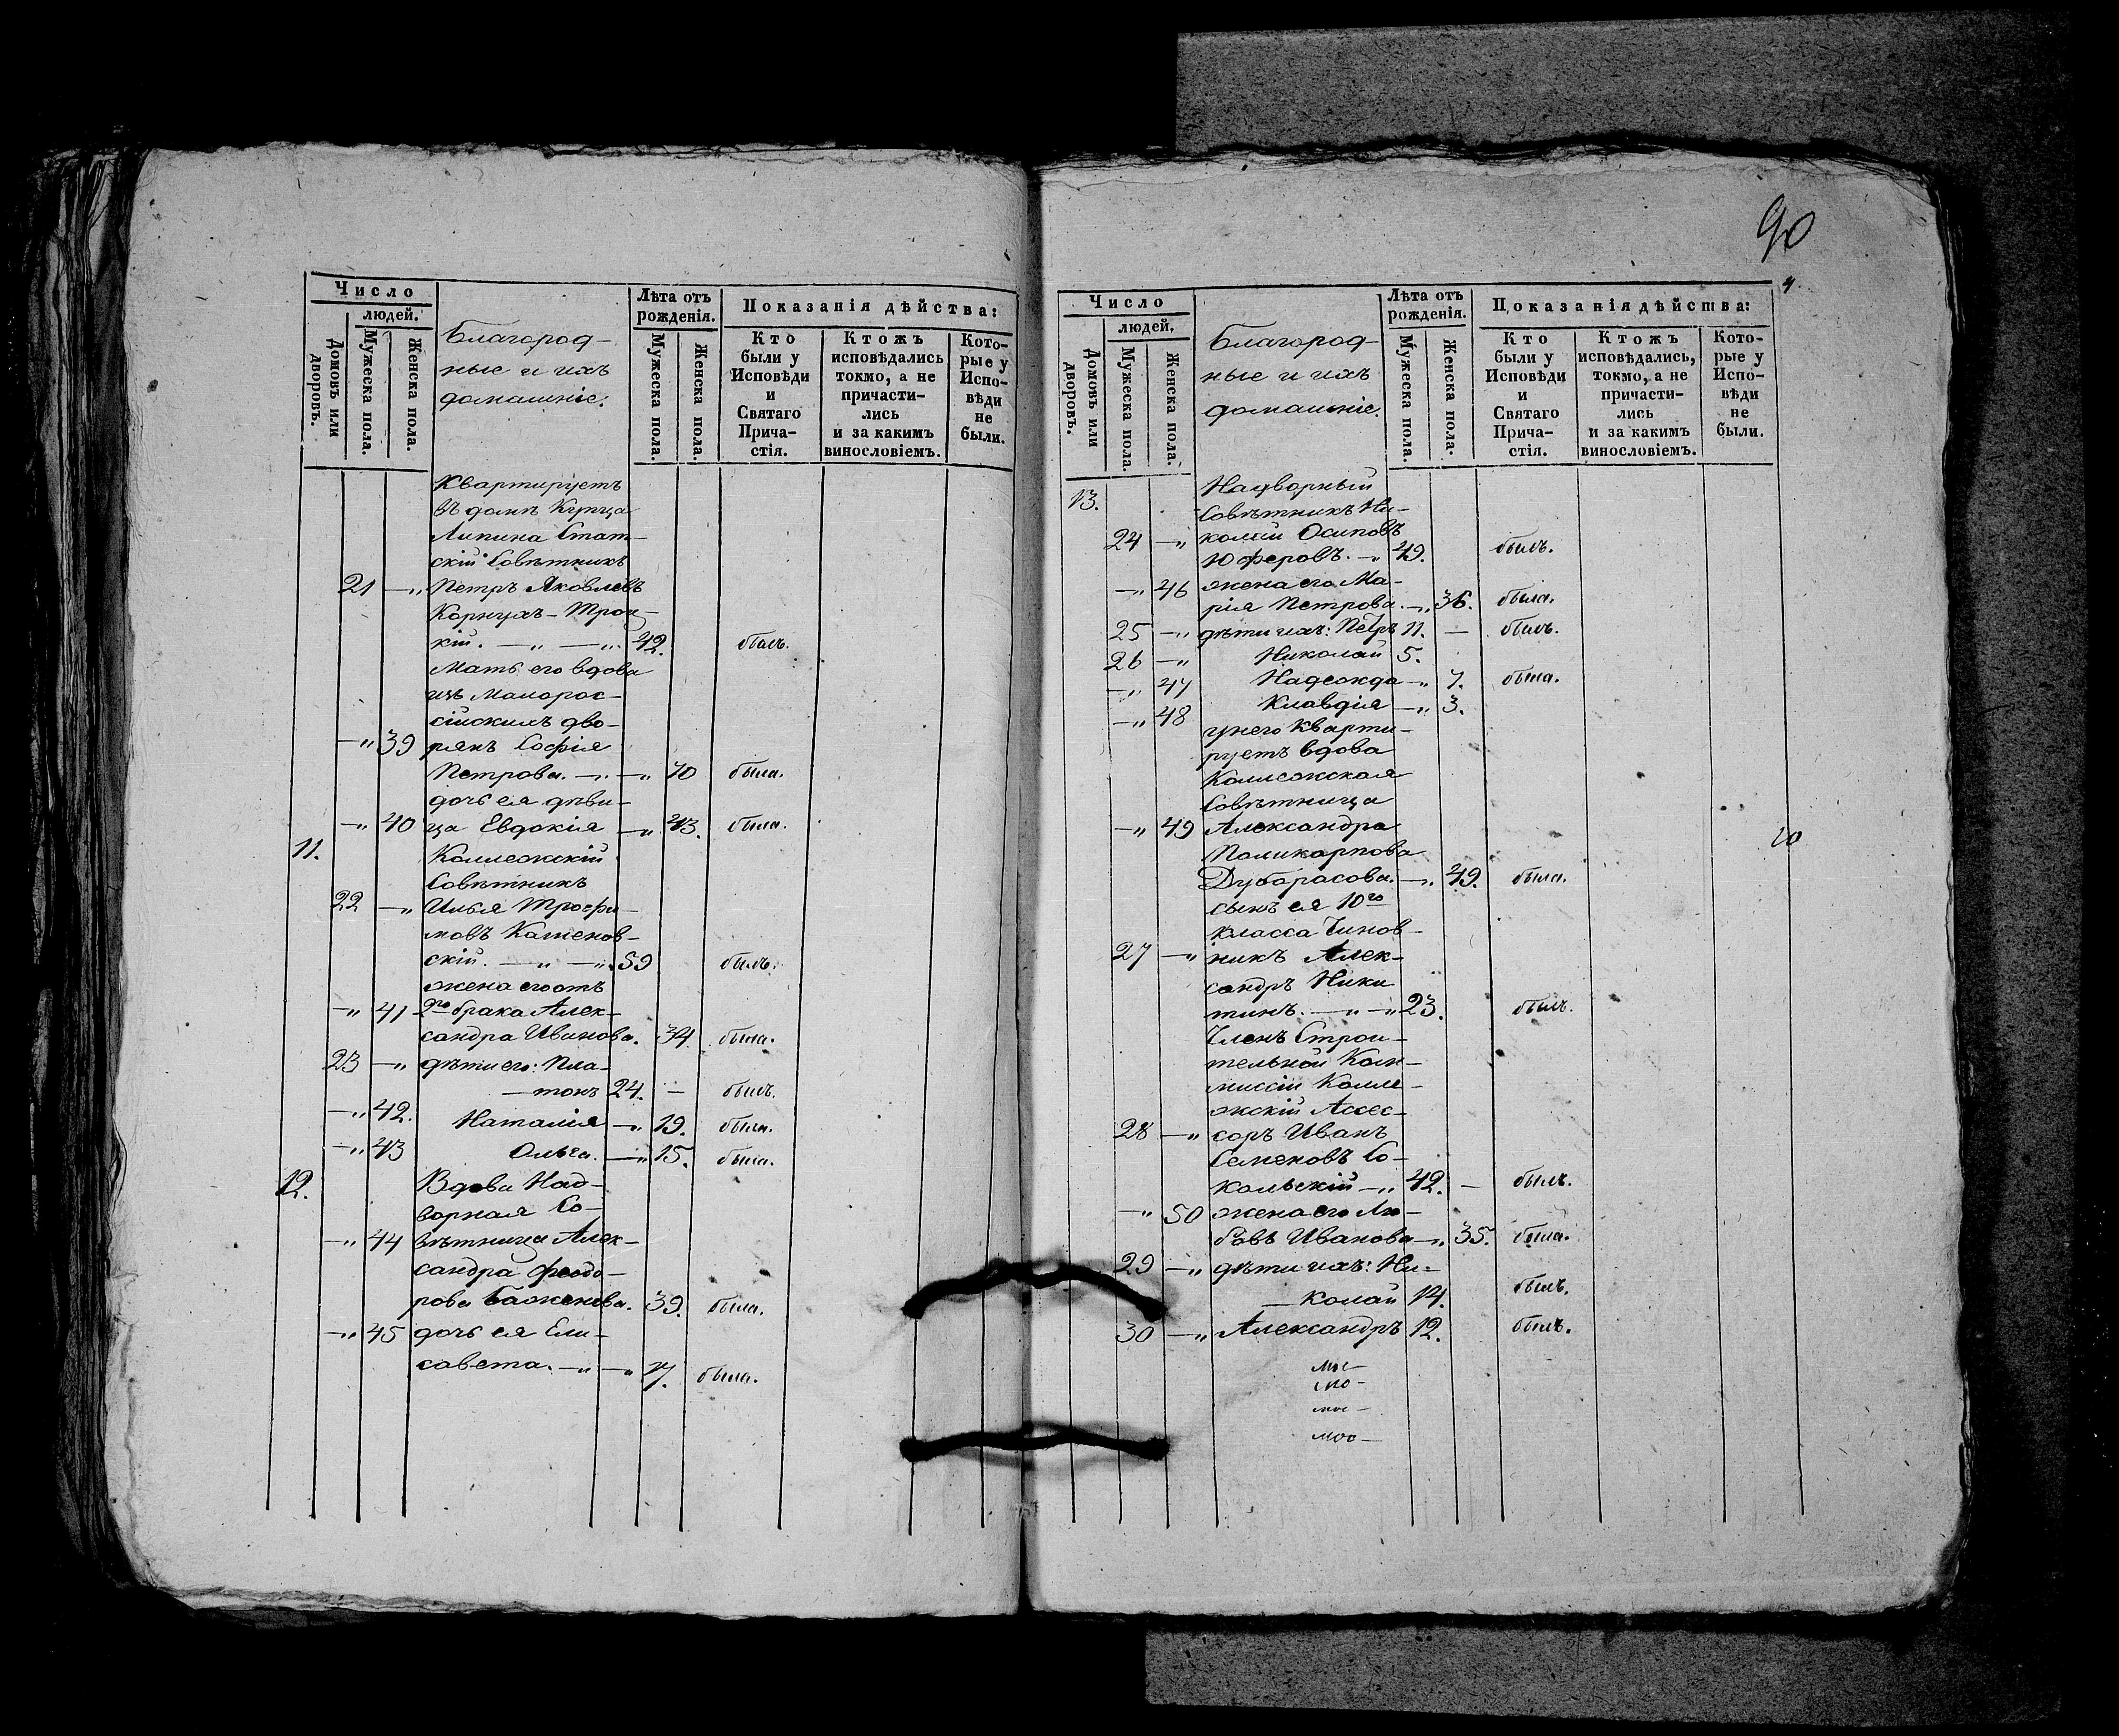 Число
людей.
Домовъ или дворовъ.
Мужеска пола.
Женска пола.
Благород-
ные и ихъ
домашніе.
Лѣта отъ
рожденія.
Мужеска пола.
Женска пола.
Показанія дѣйства:
Кто
были у
Исповѣди
и
Святаго
Прича-
стія.
Ктожъ
исповѣдались
токмо, а не
причасти-
лись
и за какимъ
винословіемъ.
Кото-
рые у
Испо-
вѣди
не
были.
Квартируетъ
въ домѣ Купца
Липина Стат-
скій Совѣтникъ
21 —„ Петръ Яковлевъ
Корнухъ-Троц-
кій. —„ —„ 42. былъ.
Мать его вдова
изъ Малорос-
сійскихъ дво-
—„ 39 рянъ Софія
Петрова. —„ —„ 70 была.
дочь ея дѣви-
—„ 40 ца Евдокія —„ 43. была.
11. Коллежскій
Совѣтникъ
22 —„ Илья Трофи-
мовъ Каменов-
скій. —„ —„ 59 былъ.
жена его отъ
—„ 41 2го брака Алек-
сандра Иванова. 34. была.
23 —„ дѣти его: Пла-
—тонъ 24. — былъ.
—„ 42. Наталія —„ 19. была.
—„ 43 Ольга. —„ 15. была.
12. Вдова Над-
ворная Со-
—„ 44 вѣтница Алек-
сандра Феодо-
рова Баженова. 39. была.
—„ 45 дочь ея Ели-
савета. —„ —„ 17. была.
90
Число
людей.
Домовъ или дворовъ.
Мужеска пола.
Женска пола.
Благород-
ные и ихъ
домашніе.
Лѣта отъ
рожденія.
Мужеска пола.
Женска пола.
Показанія дѣйства:
Кто
были у
Исповѣди
и
Святаго
Прича-
стія.
Ктожъ
исповѣдались,
токмо, а не
причасти-
лись
и за какимъ
винословіемъ.
Кото-
рые у
Испо-
вѣди
не
были.
13. Надворный
Совѣтникъ Ни-
24 —„ колай Осиповъ
Юферовъ. —„ 49. былъ.
—„ 46 жена его Ма-
рія Петрова. —„ 36. была.
25 —„ дѣти ихъ: Петръ 11. — былъ.
26 —„ Николай 5.
—„ 47 Надежда —„ 7. была.
—„ 48 Клавдія —„ 3.
у него Кварти-
руетъ вдова
Коллежская
Совѣтница
—„ 49 Александра
Поликарпова
Дубарасова. —„ 49. была.
сынъ ея 10го
класса Чинов-
27 —„ никъ Алек-
сандръ Ники
тинъ. —„ —„ 23. былъ.
Членъ Строи-
тельной Ком-
миссіи Колле-
жскій Ассес-
28 —„ соръ Иванъ
Семеновъ Со-
кольскій —„ 42. — былъ.
—„ 50 жена его Лю-
бовь Иванова —„ 35. была.
29 —„ дѣти ихъ: Ни-
—колай 14. былъ.
30 —„ Александръ 12. былъ.